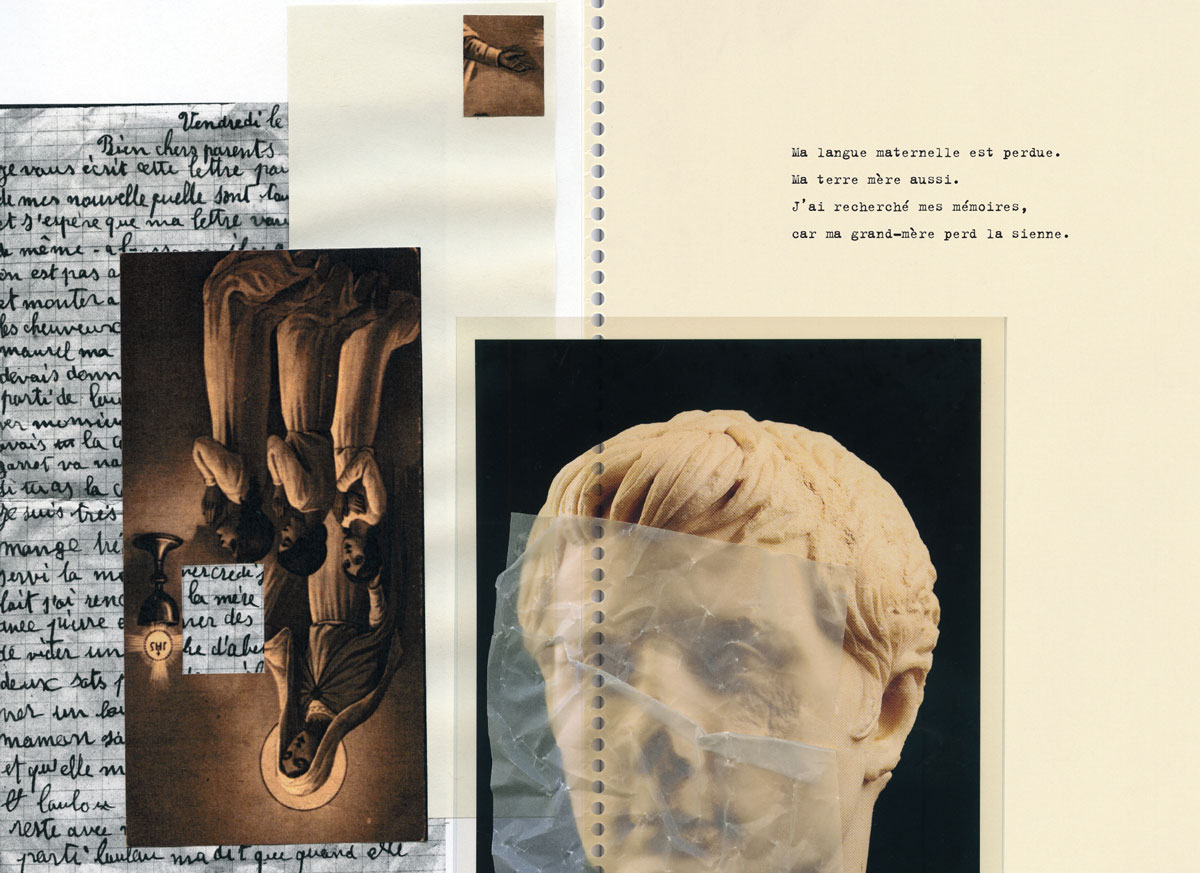 Vendredi le
Bien chers parents
je vous écrit cette lettre pou
de mes nouvelle quelle sont
et s'espére que ma lettre vou
de même
on est pas a
et monter a
les cheuveux
maurel ma
devais donn
parti de
er monsieu
avais la c
garret va na
si tu as la c
Je suis trés
mange
servi la me
lait j'ai renc
de vider un
deux sots p
ner un
maman sa
et qu'elle m
reste avec
parti ma dit que quand elle
vercredis
la mère
ner des
he d'abe
JHS
Ma langue maternelle est perdue.
Ma terre mère aussi.
J'ai recherché mes mémoires,
car ma grand-mère perd la sienne.